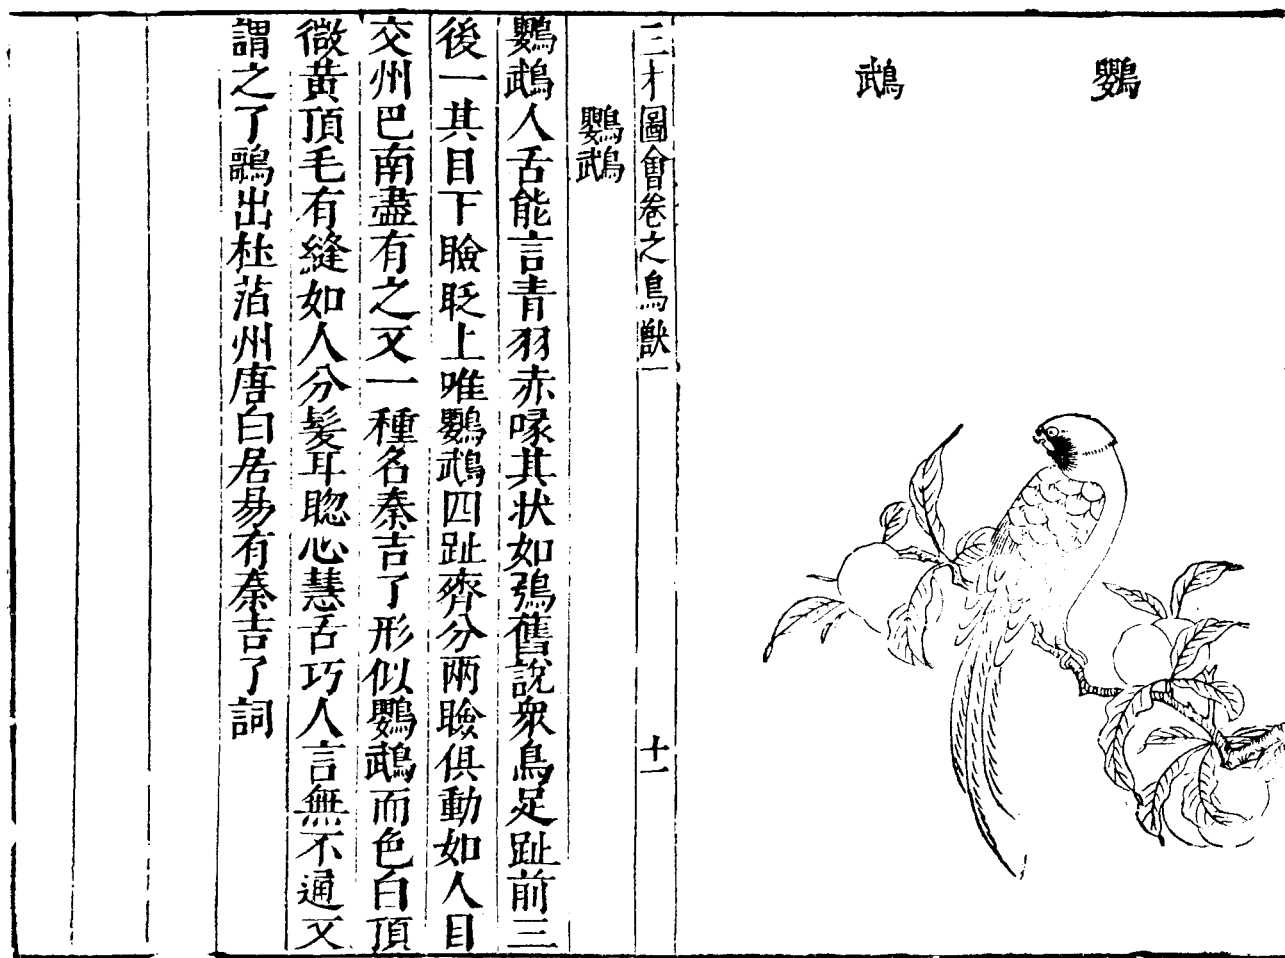 鸚䳇
三才圖會卷之鳥獸一 十一
鸚䳇
鸚䳇人舌能言青羽赤喙其狀如鴞舊說衆鳥足趾前三
後一其目下瞼眨上唯鸚䳇四趾齊分兩瞼俱動如人目
交州巴南盡有之又一種名秦吉了形似鸚䳇而色白頂
微黄頂毛有縫如人分髮耳聦心慧舌巧人言無不通又
謂之了鷊出杜萡州唐白居易有秦吉了詞